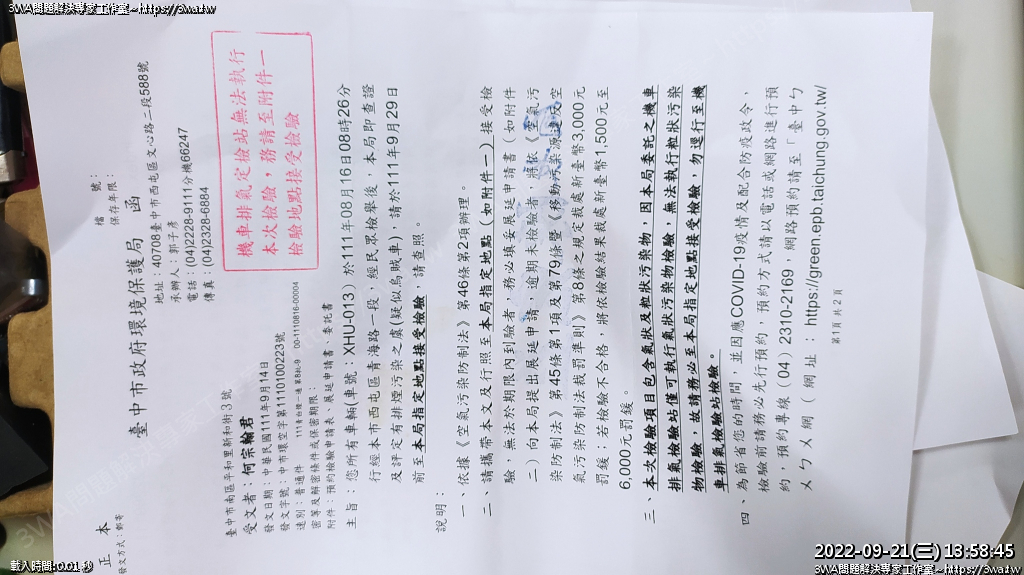 3WA問題解決專家工作室~https://3wa.tw
3WA問題解決專家工作室~https://3wa.tw
正 本
發文方式：郵寄
檔 號：
保存年限：
臺中市政府環境保護局 函
地址：40708臺中市西屯區文心路二段588號
承辦人：郭子彥
電話：(04)2228-9111分機66247
傳真：(04)2328-6884
機車排氣定檢站無法執行
本次檢驗，務請至附件一
檢驗地點接受檢驗
臺中市南區平和里新和街3號
受文者：何宗翰君
發文日期：中華民國111年9月14日
發文字號：中市環空字第1110100223號
速別：普通件
密等及解密條件或保密期限：
附件：預約檢驗申請表、展延申請書、委託書
主旨：您所有車輛(車號：XHU-013）於111年08月16日08時26分
行經本市西屯區青海路一段，經民眾檢舉後，本局即查證
及評定有排煙污染之虞(疑似烏賊車)，請於111年9月29日
前至本局指定地點接受檢驗，請查照。
說明：
一、依據《空氣污染防制法》第46條第2項辦理。
二、請攜帶本文及行照至本局指定地點（如附件一）接受檢
驗，無法於期限內到驗者，務必填妥展延申請書（如附件
二）向本局提出展延申請，逾期未檢驗者，將依《空氣污
染防制法》第45條第1項及第79條暨《移動污染源違反空
氣污染防制法裁罰準則》第8條之規定裁處新臺幣3,000元
罰鍰；若檢驗不合格，將依檢驗結果裁處新臺幣1,500元至
6,000元罰鍰。
三、本次檢驗項目包含氣狀及粒狀污染物，因本局委託之機車
排氣檢驗站僅可執行氣狀污染物檢驗，無法執行粒狀污染
物檢驗，故請務必至本局指定地點接受檢驗，勿逕行至機
車排氣檢驗站檢驗。
四、為節省您的時間，並因應COVID-19疫情及配合防疫政令，
檢驗前請務必先行預約，預約方式請以電話或網路進行預
約，預約專線（04）2310-2169，網路預約請至「臺中ㄅ
ㄨㄅㄨ網（網址：https://green.epb.taichung.gov.tw/
第1頁 共2頁
2022-09-21(三) 13:58:45
載入時間:0.01 秒
3WA問題解決專家工作室~https://3wa.tw